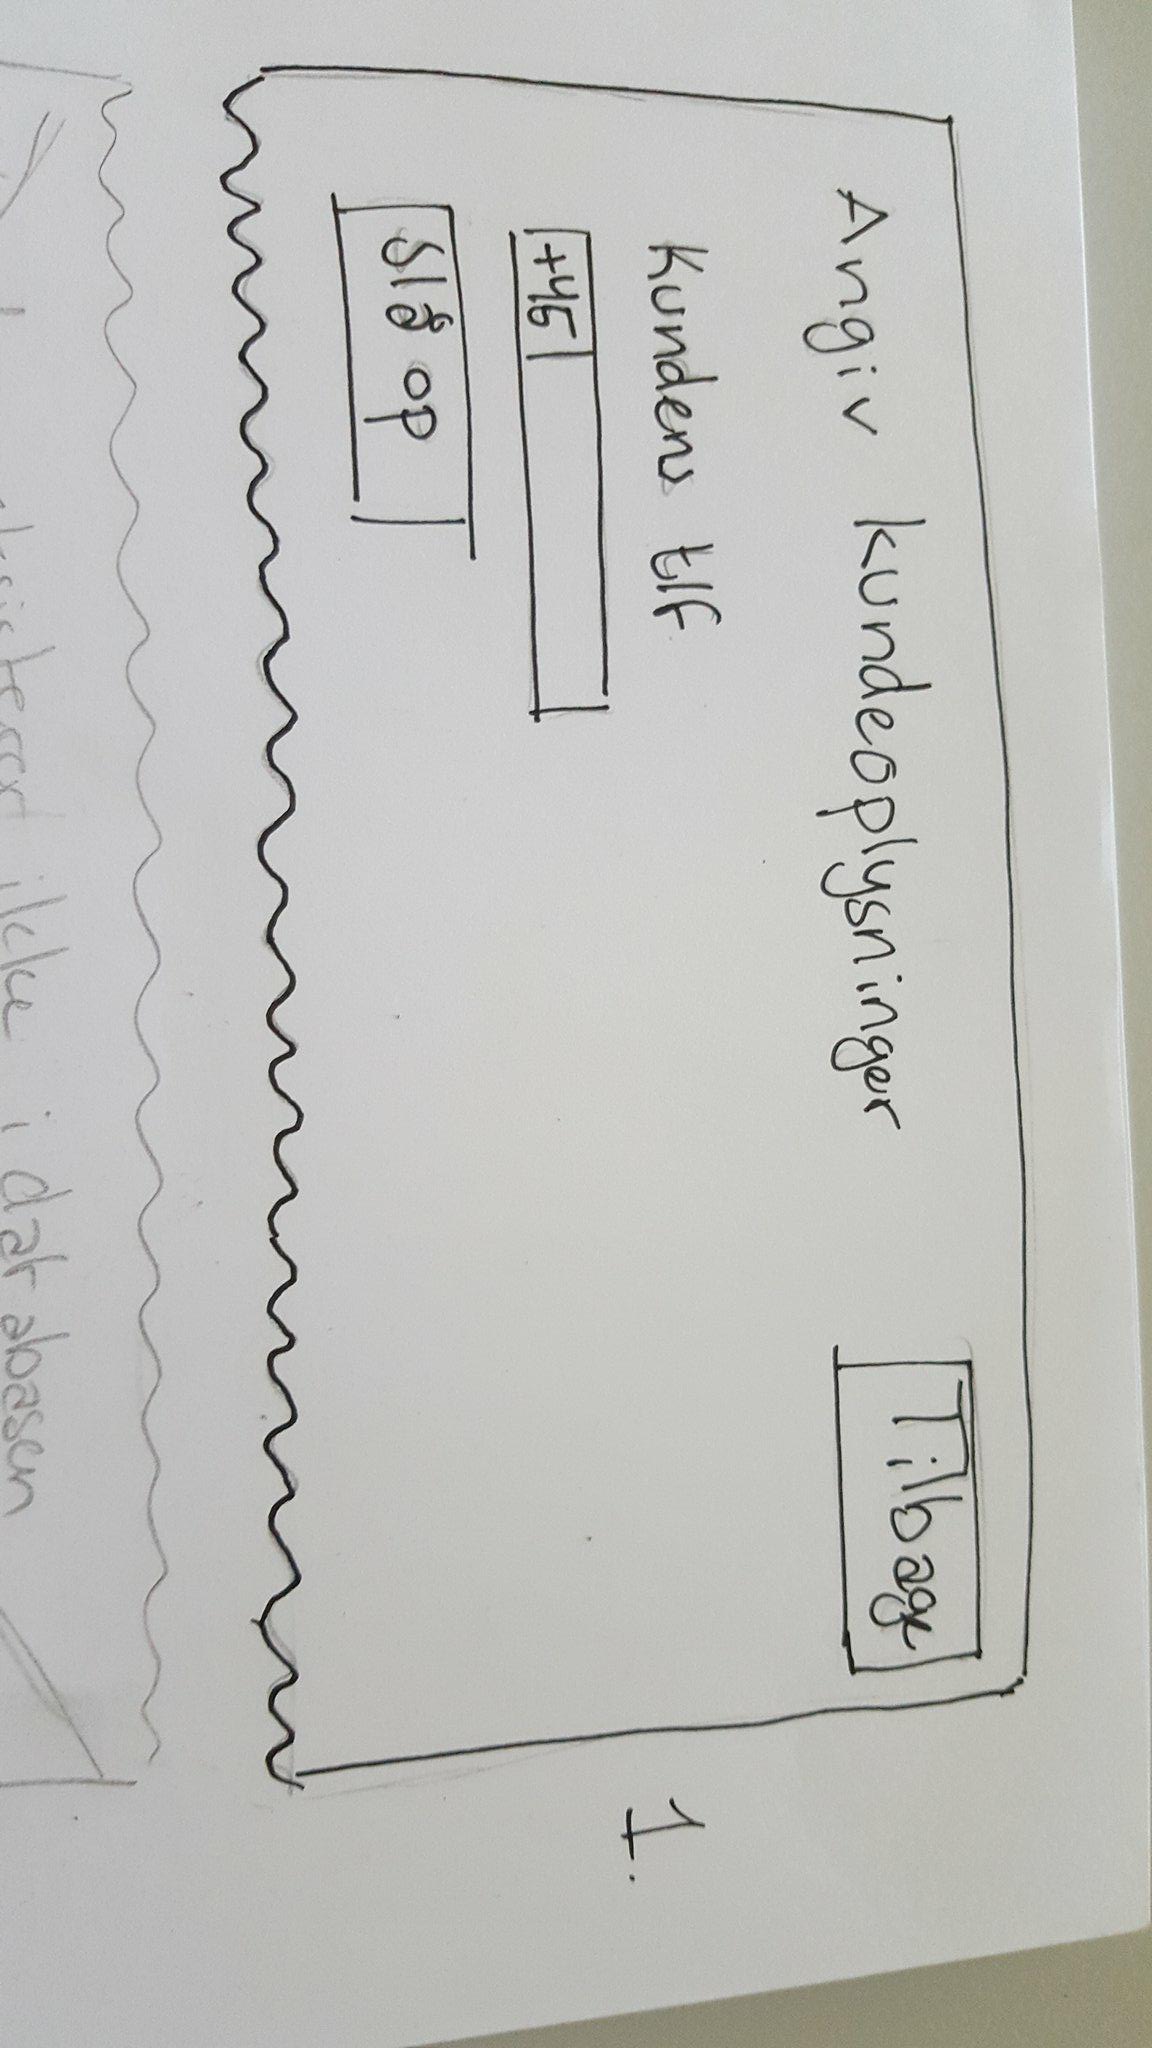 Angiv kundeoplysninger
Tilbage
Kundens tlf
+45
Slå op
1.
ikke i databasen